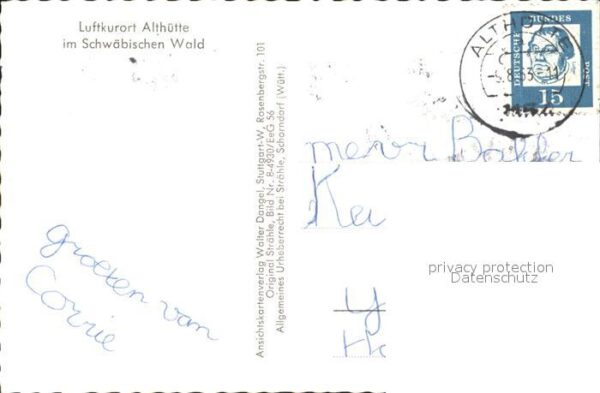 Luftkurort Althütte
im Schwäbischen Wald
Ansichtskartenverlag Walter Dangel, Stuttgart-W, Rosenbergstr. 101
Original Strähle, Bild Nr. 8-4930/EeG 56
Allgemeines Urheberrecht bei Strähle, Schorndorf (Württ.)
DEUTSCHE BUNDESPOST
15
ALTHÜTTE
groeten van
Corrie
privacy protection
Datenschutz